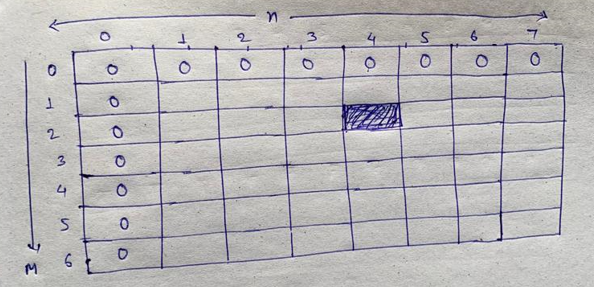 n
0 1 2 3 4 5 6 7
0 0 0 0 0 0 0 0 0
1 0
2 0
3 0
4 0
5 0
6 0
M